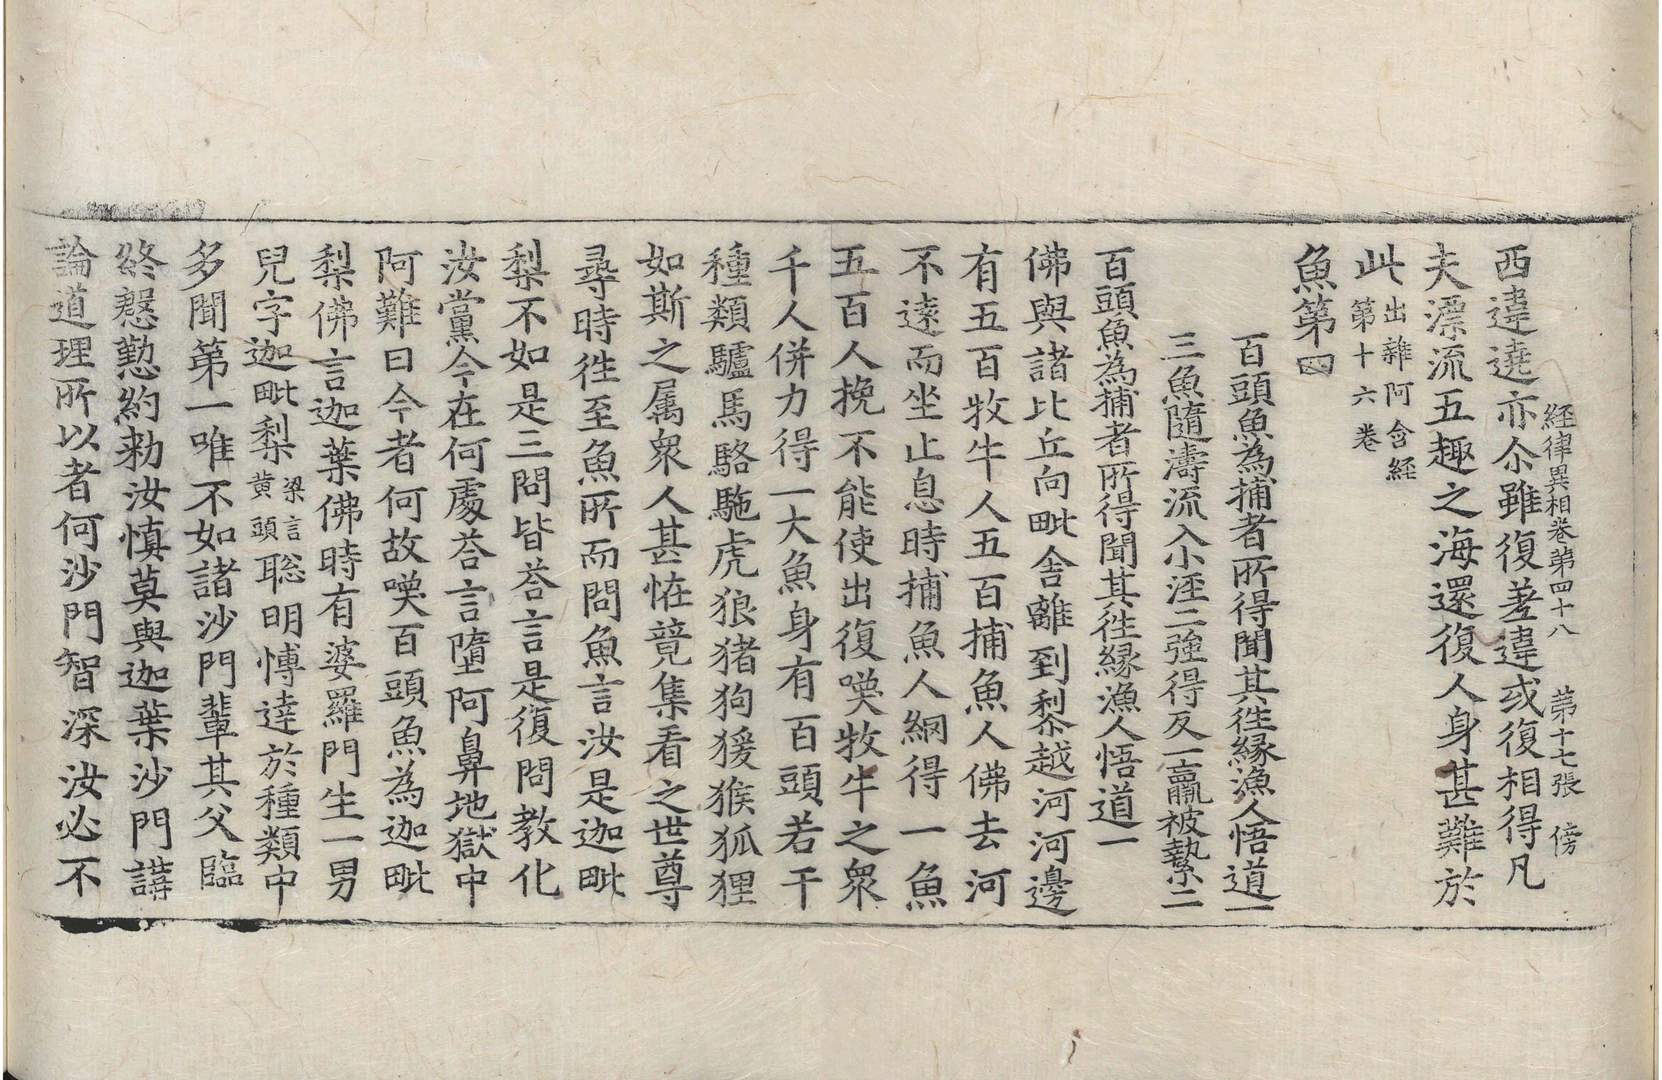 經律異相卷第四十八　第十七張　傍
西違遶亦尒雖復差違或復相得凡
夫漂流五趣之海還復人身甚難於
此出雜阿含經
第十六卷
魚第四
百頭魚為捕者所得聞其徃緣漁人悟道一
三魚隨濤流入小涇二強得反一羸被縶二
百頭魚為捕者所得聞其徃緣漁人悟道一
佛與諸比丘向毗舍離到梨越河河邊
有五百牧牛人五百捕魚人佛去河
不遠而坐止息時捕魚人網得一魚
五百人挽不能使出復喚牧牛之衆
千人併力得一大魚身有百頭若干
種類驢馬駱駞虎狼猪狗猨猴狐狸
如斯之属衆人甚恠競集看之世尊
尋時徃至魚所而問魚言汝是迦毗
梨不如是三問皆荅言是復問教化
汝黨今在何處荅言墮阿鼻地獄中
阿難曰今者何故喚百頭魚為迦毗
梨佛言迦葉佛時有婆羅門生一男
兒字迦毗梨梁言黄頭聡明愽達於種類中
多聞第一唯不如諸沙門輩其父臨
終慇懃約勑汝慎莫與迦葉沙門講
論道理所以者何沙門智深汝必不